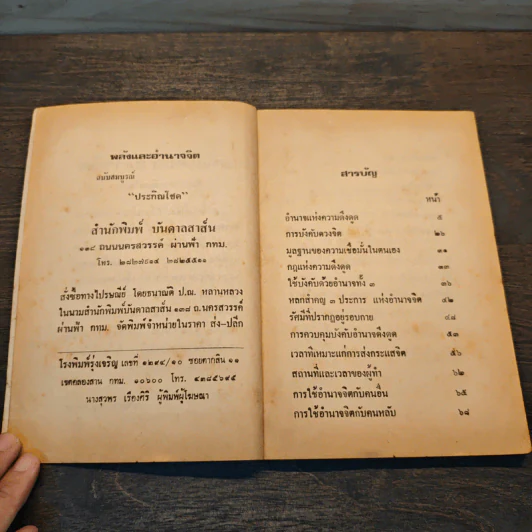 พลังและอำนาจจิต
ฉบับสมบูรณ์
"ประกิณโชค"
สำนักพิมพ์ บันดาลสาส์น
๑๑๘ ถนนนครสวรรค์ ผ่านฟ้า กทม.
โทร.
สั่งซื้อทางไปรษณีย์ โดยธนาณัติ ป.ณ. หลานหลวง
ในนามสำนักพิมพ์บันดาลสาส์น ๑๓๘ ถ.นครสวรรค์
ผ่านฟ้า กทม. จัดพิมพ์จำหน่ายในราคา ส่ง-ปลีก
โรงพิมพ์รุ่งเจริญ เลขที่ ๑๒๙๔/๑๐ ซอยตากสิน ๑๑
เขตคลองสาน กทม. ๑๐๖๐๐ โทร. ๔๓๘๕๖๙๕
นางสุวพร เรืองศิริ ผู้พิมพ์ผู้โฆษณา
สารบัญ
หน้า
อำนาจแห่งความดึงดูด ๕
การบังคับดวงจิต ๒๖
มูลฐานของความเชื่อมั่นในตนเอง ๓๑
กฎแห่งความดึงดูด ๓๓
ใช้บังคับด้วยอำนาจทั้ง ๓ ๓๖
หลักสำคัญ ๓ ประการ แห่งอำนาจจิต ๔๒
รัศมีที่ปรากฏอยู่รอบกาย ๔๘
การควบคุมบังคับอำนาจดึงดูด ๕๓
เวลาที่เหมาะแก่การส่งกระแสจิต ๕๖
สถานที่และเวลาของผู้ทำ ๖๒
การใช้อำนาจจิตกับคนอื่น ๖๕
การใช้อำนาจจิตกับคนหลับ ๖๘